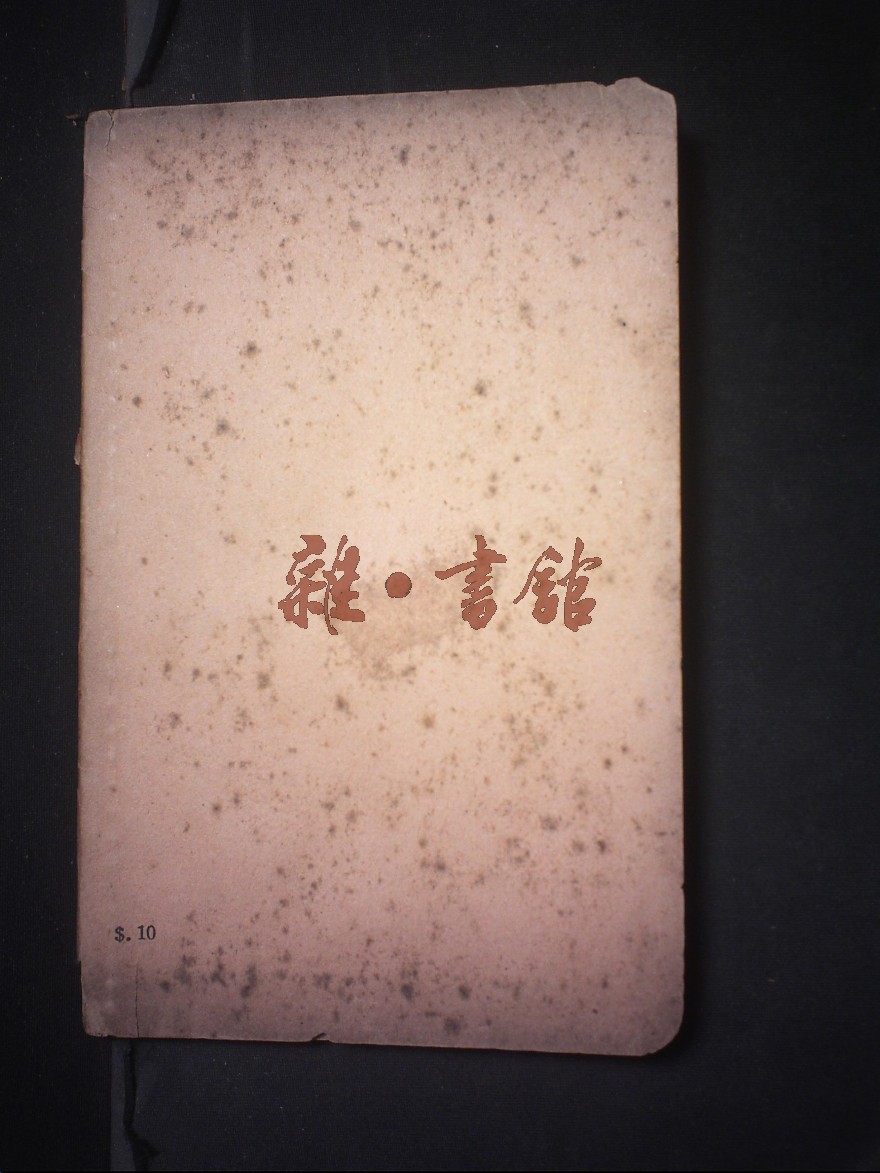 雜·書館
$.10